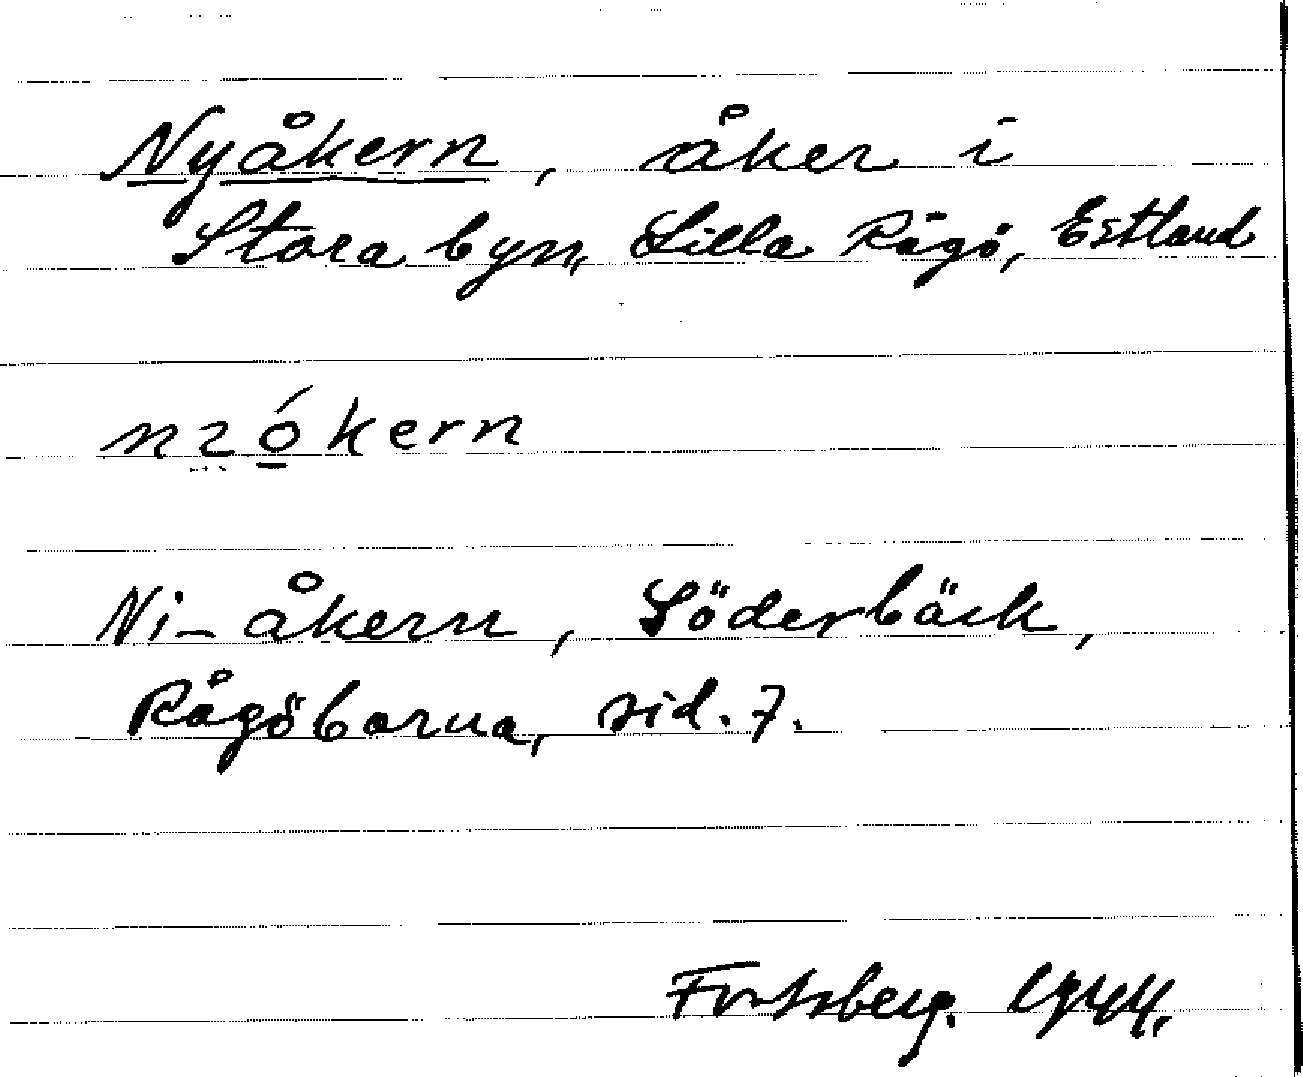 Nyåkern, åker i
Stora byn, Lilla Rågö, Estland
Ni-åkern, Söderbäck,
Rågöborna, sid. 7.
1944.